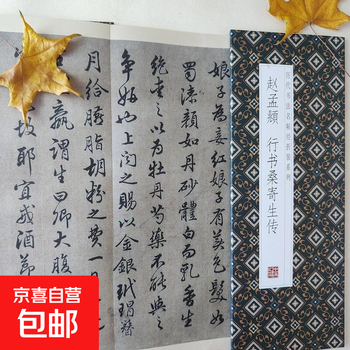 历代书法名帖经折装系列
赵孟頫 行书桑寄生传
娘子為妾紅娘子有美色髮如
蜀漆顔如丹砂體白而乳香生
絶重之以為牡丹芍藥不能與之
争妍也上聞之賜以金銀玳瑁簪
月給臙脂胡粉之費一日
羸謂生曰卿大腹
故耶宜戒酒節
京喜自营
包邮